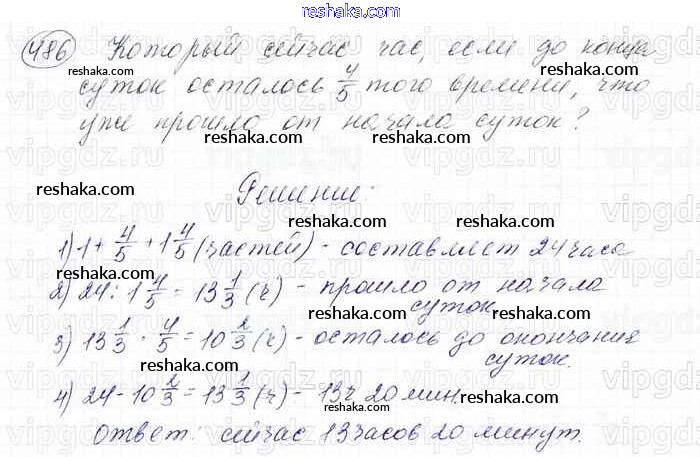 reshaka.com
486 Который сейчас час, если до конца
reshaka.com reshaka.com reshaka.com
суток осталось 4/5 того времени, что
уже прошло от начала суток?
reshaka.com reshaka.com
vipgdz.ru vipgdz.ru vipgdz.ru vipgdz.ru
reshaka.com reshaka.com
Решение:
reshaka.com reshaka.com
1) 1 + 4/5 + 1 4/5 (частей) - составляет 24 часа
reshaka.com reshaka.com
2) 24 : 1 4/5 = 13 1/3 (ч) - прошло от начала
суток.
reshaka.com reshaka.com
3) 13 1/3 · 4/5 = 10 2/3 (ч) - осталось до окончания
суток.
reshaka.com
4) 24 - 10 2/3 = 13 1/3 (ч) - 13ч 20 мин.
reshaka.com reshaka.com reshaka.com
Ответ: сейчас 13 часов 20 минут.
reshaka.com